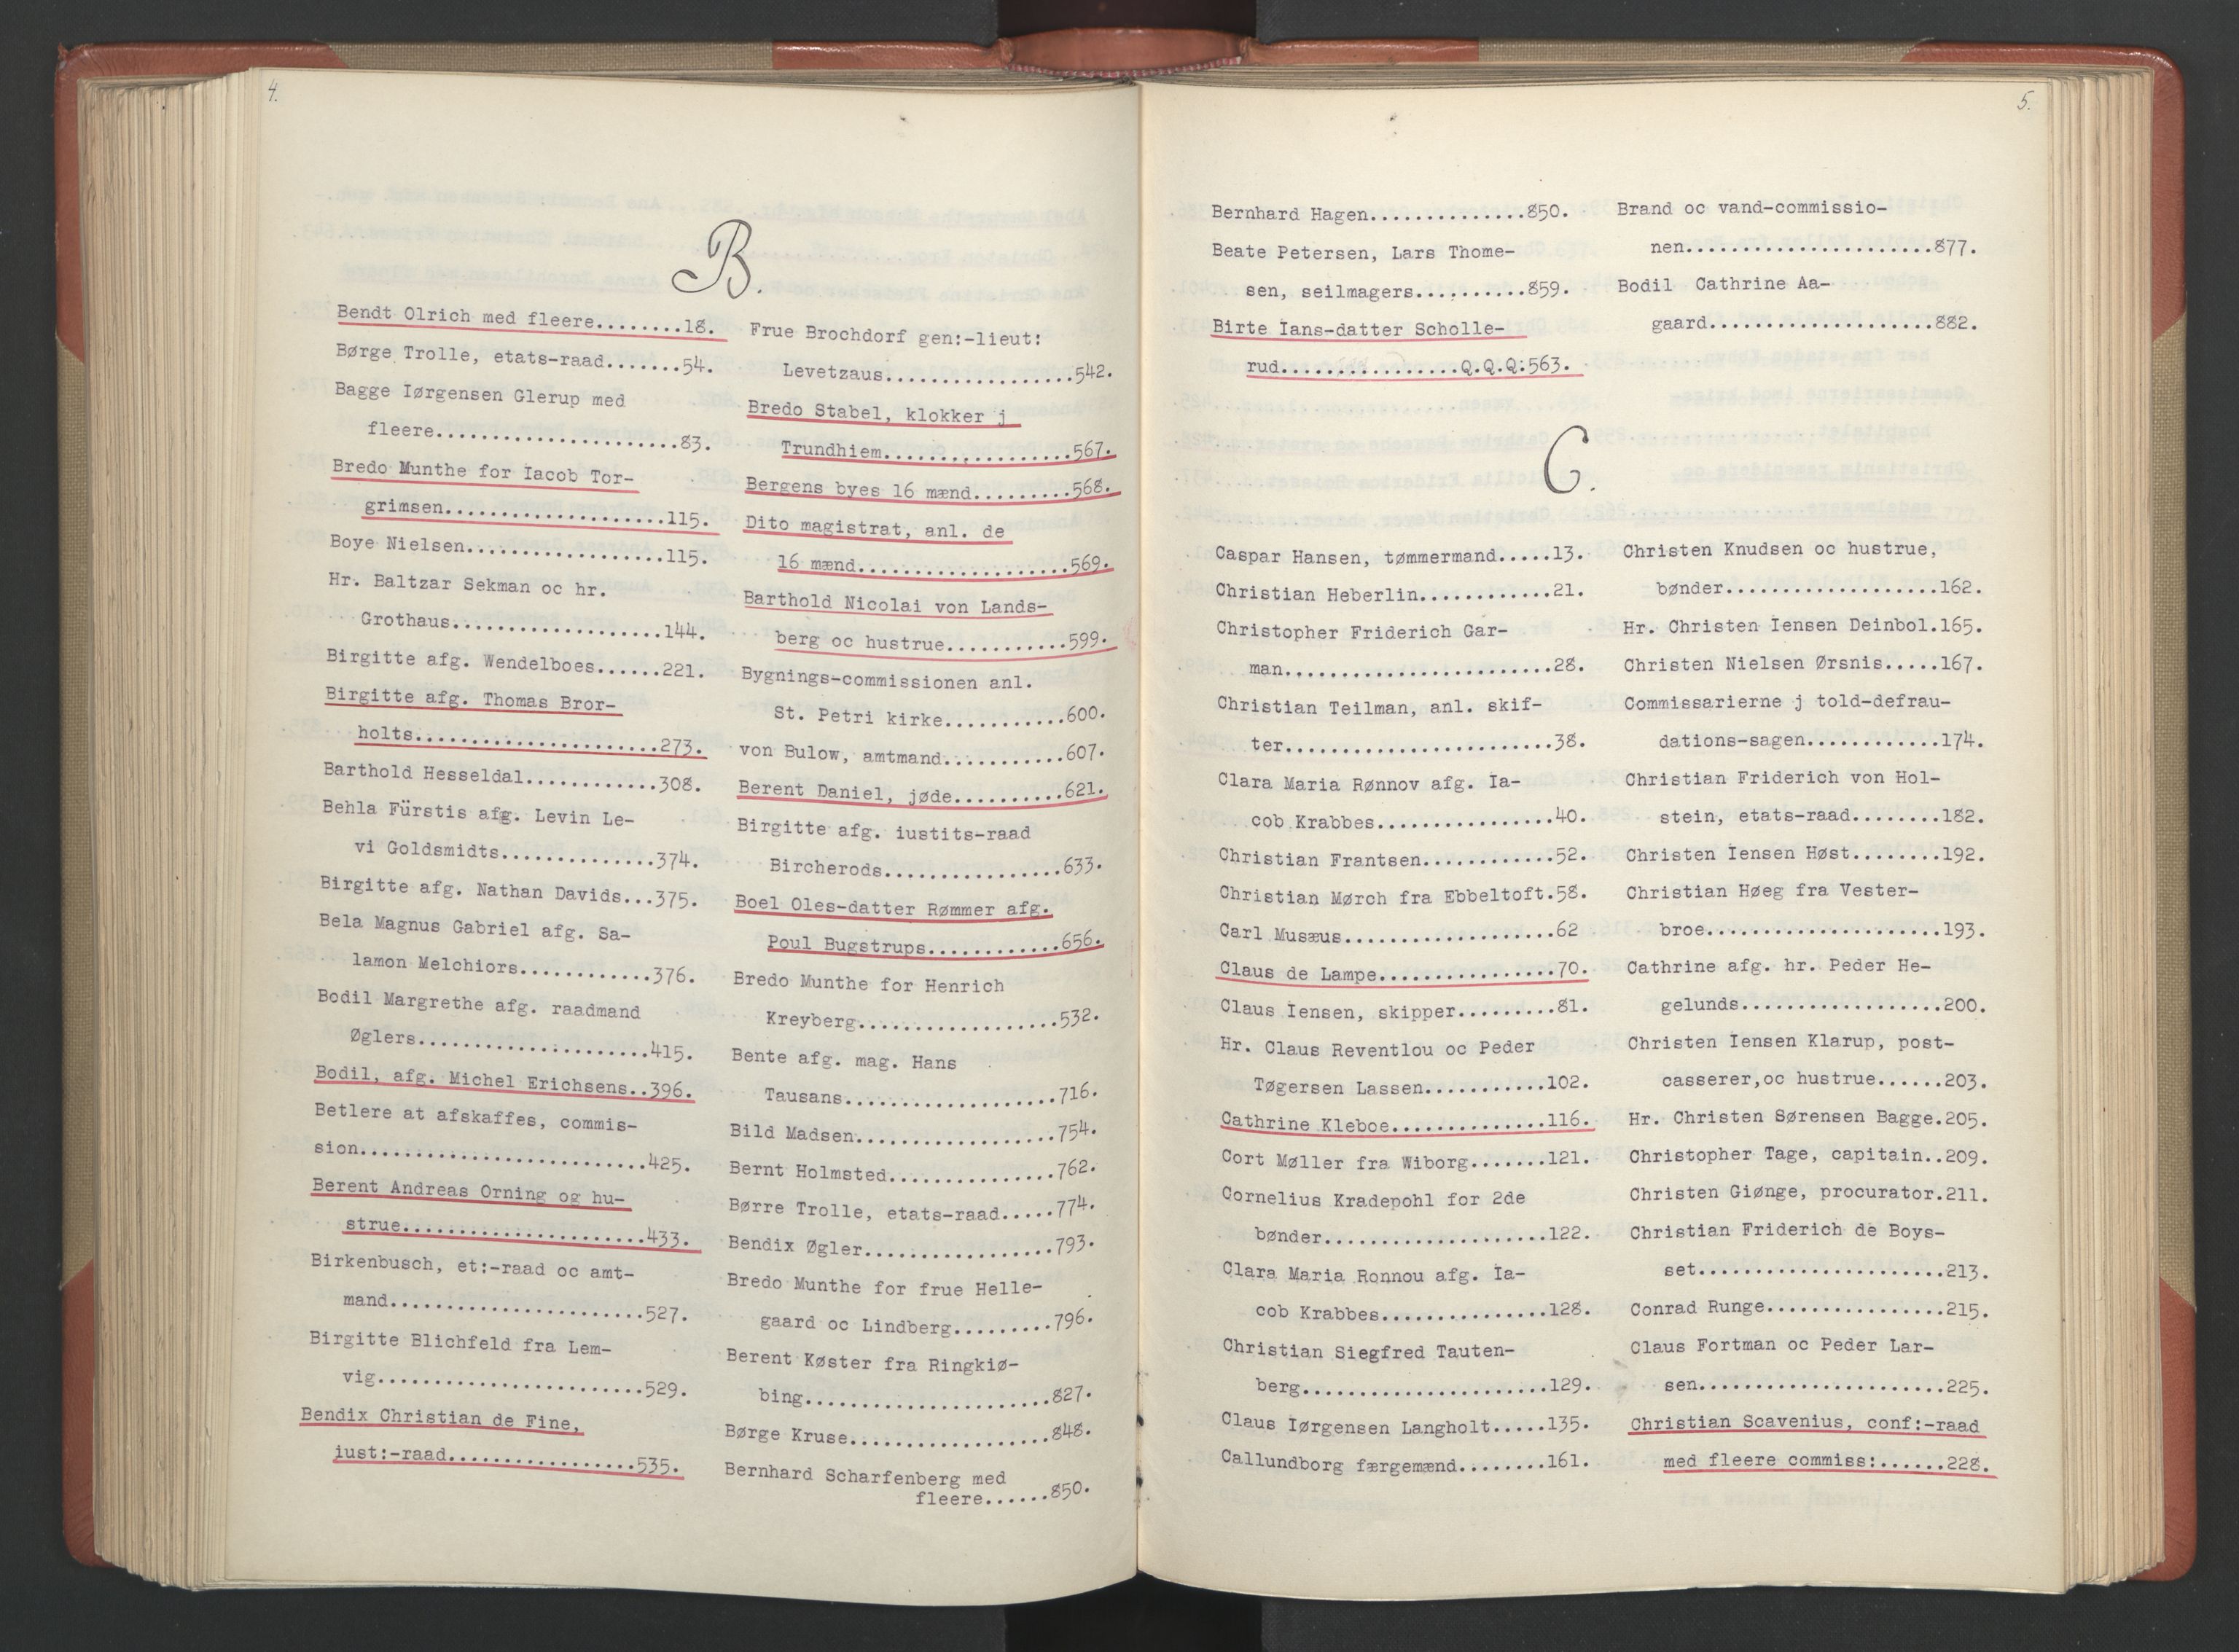 4.
B.
Bendt Olrich med fleere........18.
Børge Trolle, etats-raad.......54.
Bagge Iørgensen Glerup med
fleere......................83.
Bredo Munthe for Iacob Tor-
grimsen....................115.
Boye Nielsen..................115.
Hr. Baltzar Sekman oc hr.
Grothaus...................144.
Birgitte afg. Wendelboes......221.
Birgitte afg. Thomas Bror-
holts......................273.
Barthold Hesseldal............308.
Behla Fürstis afg. Levin Le-
vi Goldsmidts..............374.
Birgitte afg. Nathan Davids...375.
Bela Magnus Gabriel afg. Sa-
lamon Melchiors............376.
Bodil Margrethe afg. raadmand
Øglers.....................415.
Bodil, afg. Michel Erichsens..396.
Betlere at afskaffes, commis-
sion..........................425.
Berent Andreas Orning og hu-
strue......................433.
Birkenbusch, et:-raad oc amt-
mand.......................527.
Birgitte Blichfeld fra Lem-
vig........................529.
Bendix Christian de Fine,
iust:-raad.................535.
Frue Brochdorf gen:-lieut:
Levetzaus.................542.
Bredo Stabel, klokker j
Trundhiem.................567.
Bergens byes 16 mænd.........568.
Dito magistrat, anl. de
16 mænd...................569.
Barthold Nicolai von Lands-
berg oc hustrue...........599.
Bygnings-commissionen anl.
St. Petri kirke...........600.
von Bulow, amtmand...........607.
Berent Daniel, jøde..........621.
Birgitte afg. iustits-raad
Bircherods................633.
Boel Oles-datter Rømmer afg.
Poul Bugstrups............656.
Bredo Munthe for Henrich
Kreyberg..................532.
Bente afg. mag. Hans
Tausans...................716.
Bild Madsen..................754.
Bernt Holmsted...............762.
Børre Trolle, etats-raad.....774.
Bendix Øgler.................793.
Bredo Munthe for frue Helle-
gaard oc Lindberg.........796.
Berent Køster fra Ringkiø-
bing......................827.
Børge Kruse..................848.
Bernhard Scharfenberg med
fleere......850.
5.
Bernhard Hagen..............850.
Beate Petersen, Lars Thome-
sen, seilmagers..........859.
Birte Ians-datter Scholle-
rud................Q.Q.Q:563.
Brand oc vand-commissio-
nen......................877.
Bodil Cathrine Aa-
gaard....................882.
C.
Caspar Hansen, tømmermand.....13.
Christian Heberlin............21.
Christopher Friderich Gar-
man........................28.
Christian Teilman, anl. skif-
ter........................38.
Clara Maria Rønnov afg. Ia-
cob Krabbes................40.
Christian Frantsen............52.
Christian Mørch fra Ebbeltoft.58.
Carl Musæus...................62
Claus de Lampe................70.
Claus Iensen, skipper.........81.
Hr. Claus Reventlou oc Peder
Tøgersen Lassen...........102.
Cathrine Kleboe..............116.
Cort Møller fra Wiborg.......121.
Cornelius Kradepohl for 2de
bønder....................122.
Clara Maria Ronnou afg. Ia-
cob Krabbes...............128.
Christian Siegfred Tauten-
berg......................129.
Claus Iørgensen Langholt.....135.
Callundborg færgemænd........161.
Christen Knudsen oc hustrue,
bønder...................162.
Hr. Christen Iensen Deinbol.165.
Christen Nielsen Ørsnis.....167.
Commissarierne j told-defrau-
dations-sagen............174.
Christian Friderich von Hol-
stein, etats-raad........182.
Christen Iensen Høst........192.
Christian Høeg fra Vester-
broe.....................193.
Cathrine afg. hr. Peder He-
gelunds..................200.
Christen Iensen Klarup, post-
casserer,oc hustrue......203.
Hr. Christen Sørensen Bagge.205.
Christopher Tage, capitain..209.
Christen Giønge, procurator.211.
Christian Friderich de Boys-
set......................213.
Conrad Runge................215.
Claus Fortman oc Peder Lar-
sen......................225.
Christian Scavenius, conf:-raad
med fleere commiss:......228.